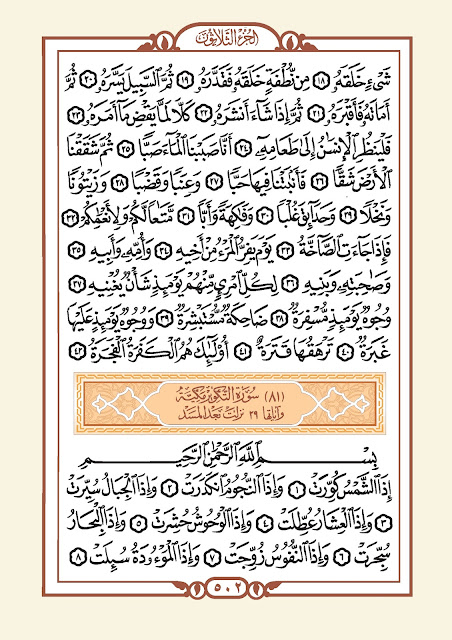 الجزء الثلاثون
شَىْءٍ خَلَقَهُۥ ۝١٨ مِن نُّطْفَةٍ خَلَقَهُۥ فَقَدَّرَهُۥ ۝١٩ ثُمَّ ٱلسَّبِيلَ يَسَّرَهُۥ ۝٢٠ ثُمَّ
أَمَاتَهُۥ فَأَقْبَرَهُۥ ۝٢١ ثُمَّ إِذَا شَآءَ أَنشَرَهُۥ ۝٢٢ كَلَّا لَمَّا يَقْضِ مَآ أَمَرَهُۥ ۝٢٣
فَلْيَنظُرِ ٱلْإِنسَٰنُ إِلَىٰ طَعَامِهِۦٓ ۝٢٤ أَنَّا صَبَبْنَا ٱلْمَآءَ صَبًّا ۝٢٥ ثُمَّ شَقَقْنَا
ٱلْأَرْضَ شَقًّا ۝٢٦ فَأَنۢبَتْنَا فِيهَا حَبًّا ۝٢٧ وَعِنَبًا وَقَضْبًا ۝٢٨ وَزَيْتُونًا
وَنَخْلًا ۝٢٩ وَحَدَآئِقَ غُلْبًا ۝٣٠ وَفَٰكِهَةً وَأَبًّا ۝٣١ مَّتَٰعًا لَّكُمْ وَلِأَنْعَٰمِكُمْ ۝٣٢
فَإِذَا جَآءَتِ ٱلصَّآخَّةُ ۝٣٣ يَوْمَ يَفِرُّ ٱلْمَرْءُ مِنْ أَخِيهِ ۝٣٤ وَأُمِّهِۦ وَأَبِيهِ ۝٣٥
وَصَٰحِبَتِهِۦ وَبَنِيهِ ۝٣٦ لِكُلِّ ٱمْرِئٍ مِّنْهُمْ يَوْمَئِذٍ شَأْنٌ يُغْنِيهِ ۝٣٧
وُجُوهٌ يَوْمَئِذٍ مُّسْفِرَةٌ ۝٣٨ ضَاحِكَةٌ مُّسْتَبْشِرَةٌ ۝٣٩ وَوُجُوهٌ يَوْمَئِذٍ عَلَيْهَا
غَبَرَةٌ ۝٤٠ تَرْهَقُهَا قَتَرَةٌ ۝٤١ أُو۟لَٰٓئِكَ هُمُ ٱلْكَفَرَةُ ٱلْفَجَرَةُ ۝٤٢
(٨١) سُورَةُ التَّكْوِيرِ مَكِّيَّة
وآياتها ٢٩ نزلت بعد المسد
بِسْمِ ٱللَّهِ ٱلرَّحْمَٰنِ ٱلرَّحِيمِ
إِذَا ٱلشَّمْسُ كُوِّرَتْ ۝١ وَإِذَا ٱلنُّجُومُ ٱنكَدَرَتْ ۝٢ وَإِذَا ٱلْجِبَالُ سُيِّرَتْ
۝٣ وَإِذَا ٱلْعِشَارُ عُطِّلَتْ ۝٤ وَإِذَا ٱلْوُحُوشُ حُشِرَتْ ۝٥ وَإِذَا ٱلْبِحَارُ
سُجِّرَتْ ۝٦ وَإِذَا ٱلنُّفُوسُ زُوِّجَتْ ۝٧ وَإِذَا ٱلْمَوْءُۥدَةُ سُئِلَتْ ۝٨
٥٠٢